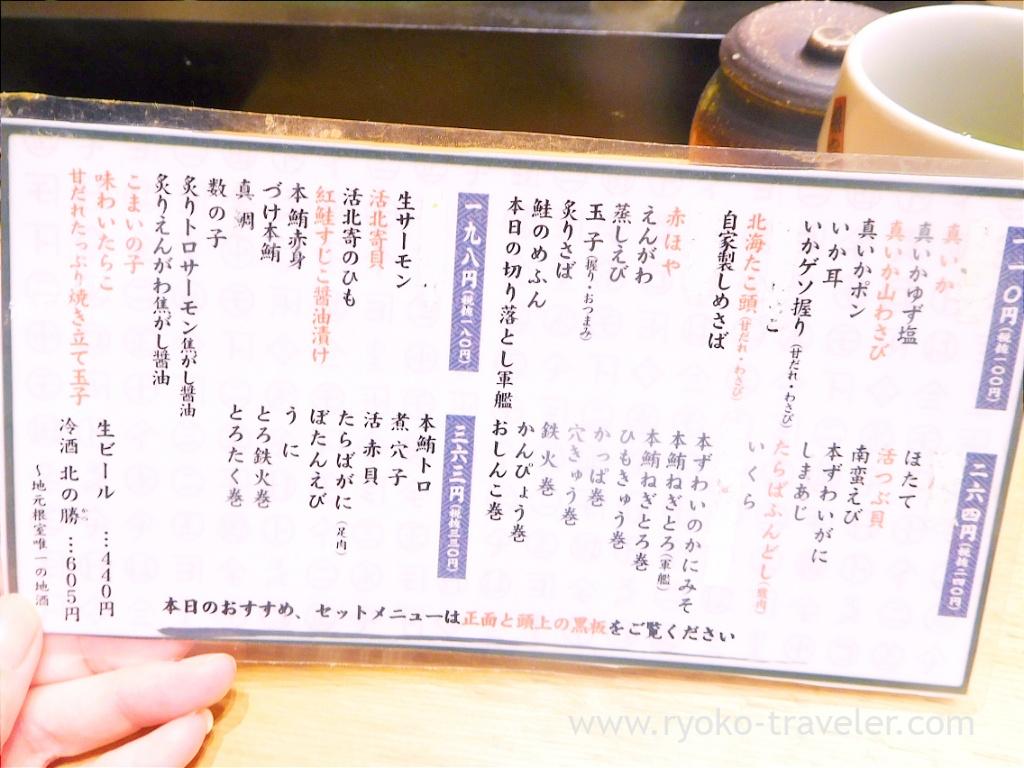 一一〇円(税抜一〇〇円)
真いか
真いかゆず塩
真いか山わさび
真いかポン
いか耳
いかゲソ握り(甘だれ・わさび)
こ
北海たこ頭(甘だれ・わさび)
自家製しめさば
赤ほや
えんがわ
蒸しえび
玉子(握り・おつまみ)
炙りさば
鮭のめふん
本日の切り落とし軍艦
一九八円(税抜一八〇円)
生サーモン
活北寄貝
活北寄のひも
紅鮭すじこ醤油漬け
本鮪赤身
づけ本鮪
真鯛
数の子
炙りトロサーモン焦がし醤油
炙りえんがわ焦がし醤油
こまいの子
味わいたらこ
甘だれたっぷり焼き立て玉子
二六四円(税抜二四〇円)
ほたて
活つぶ貝
南蛮えび
本ずわいがに
しまあじ
たらばふんどし(腹肉)
いくら
本ずわいのかにみそ
本鮪ねぎとろ(軍艦)
本鮪ねぎとろ巻
ひもきゅう巻
かっぱ巻
穴きゅう巻
鉄火巻
かんぴょう巻
おしんこ巻
三六三円(税抜三三〇円)
本鮪トロ
煮穴子
活赤貝
たらばがに(足肉)
ぼたんえび
うに
とろ鉄火巻
とろたく巻
生ビール …440円
冷酒 北の勝 …605円
～地元根室唯一の地酒
本日のおすすめ、セットメニューは正面と頭上の黒板をご覧ください
www.ryoko-traveler.com